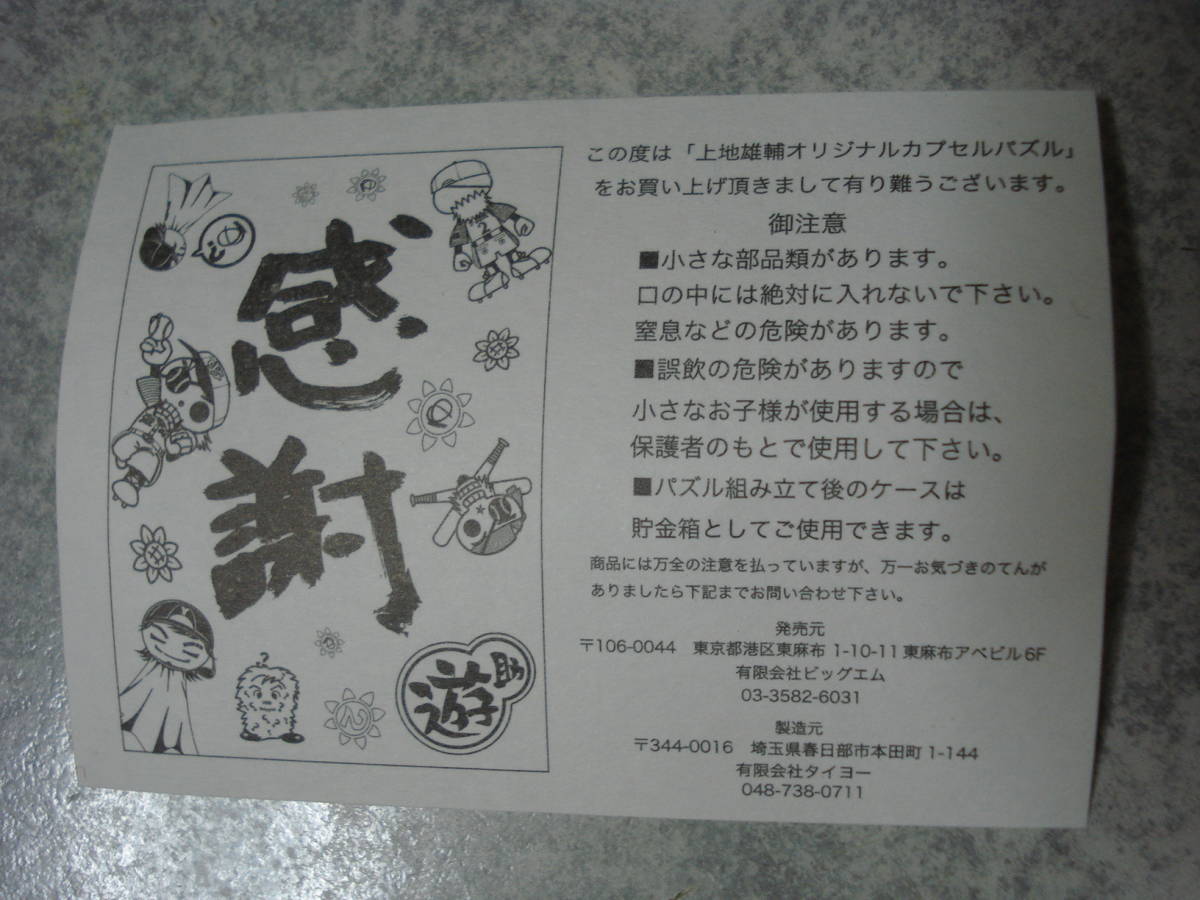 感謝
遊助
この度は「上地雄輔オリジナルカプセルパズル」
をお買い上げ頂きまして有り難うございます。
御注意
■小さな部品類があります。
口の中には絶対に入れないで下さい。
窒息などの危険があります。
■誤飲の危険がありますので
小さなお子様が使用する場合は、
保護者のもとで使用して下さい。
■パズル組み立て後のケースは
貯金箱としてご使用できます。
商品には万全の注意を払っていますが、万一お気づきのてんが
ありましたら下記までお問い合わせ下さい。
発売元
〒106-0044 東京都港区東麻布 1-10-11 東麻布アベビル 6F
有限会社ビッグエム
03-3582-6031
製造元
〒344-0016 埼玉県春日部市本田町 1-144
有限会社タイヨー
048-738-0711